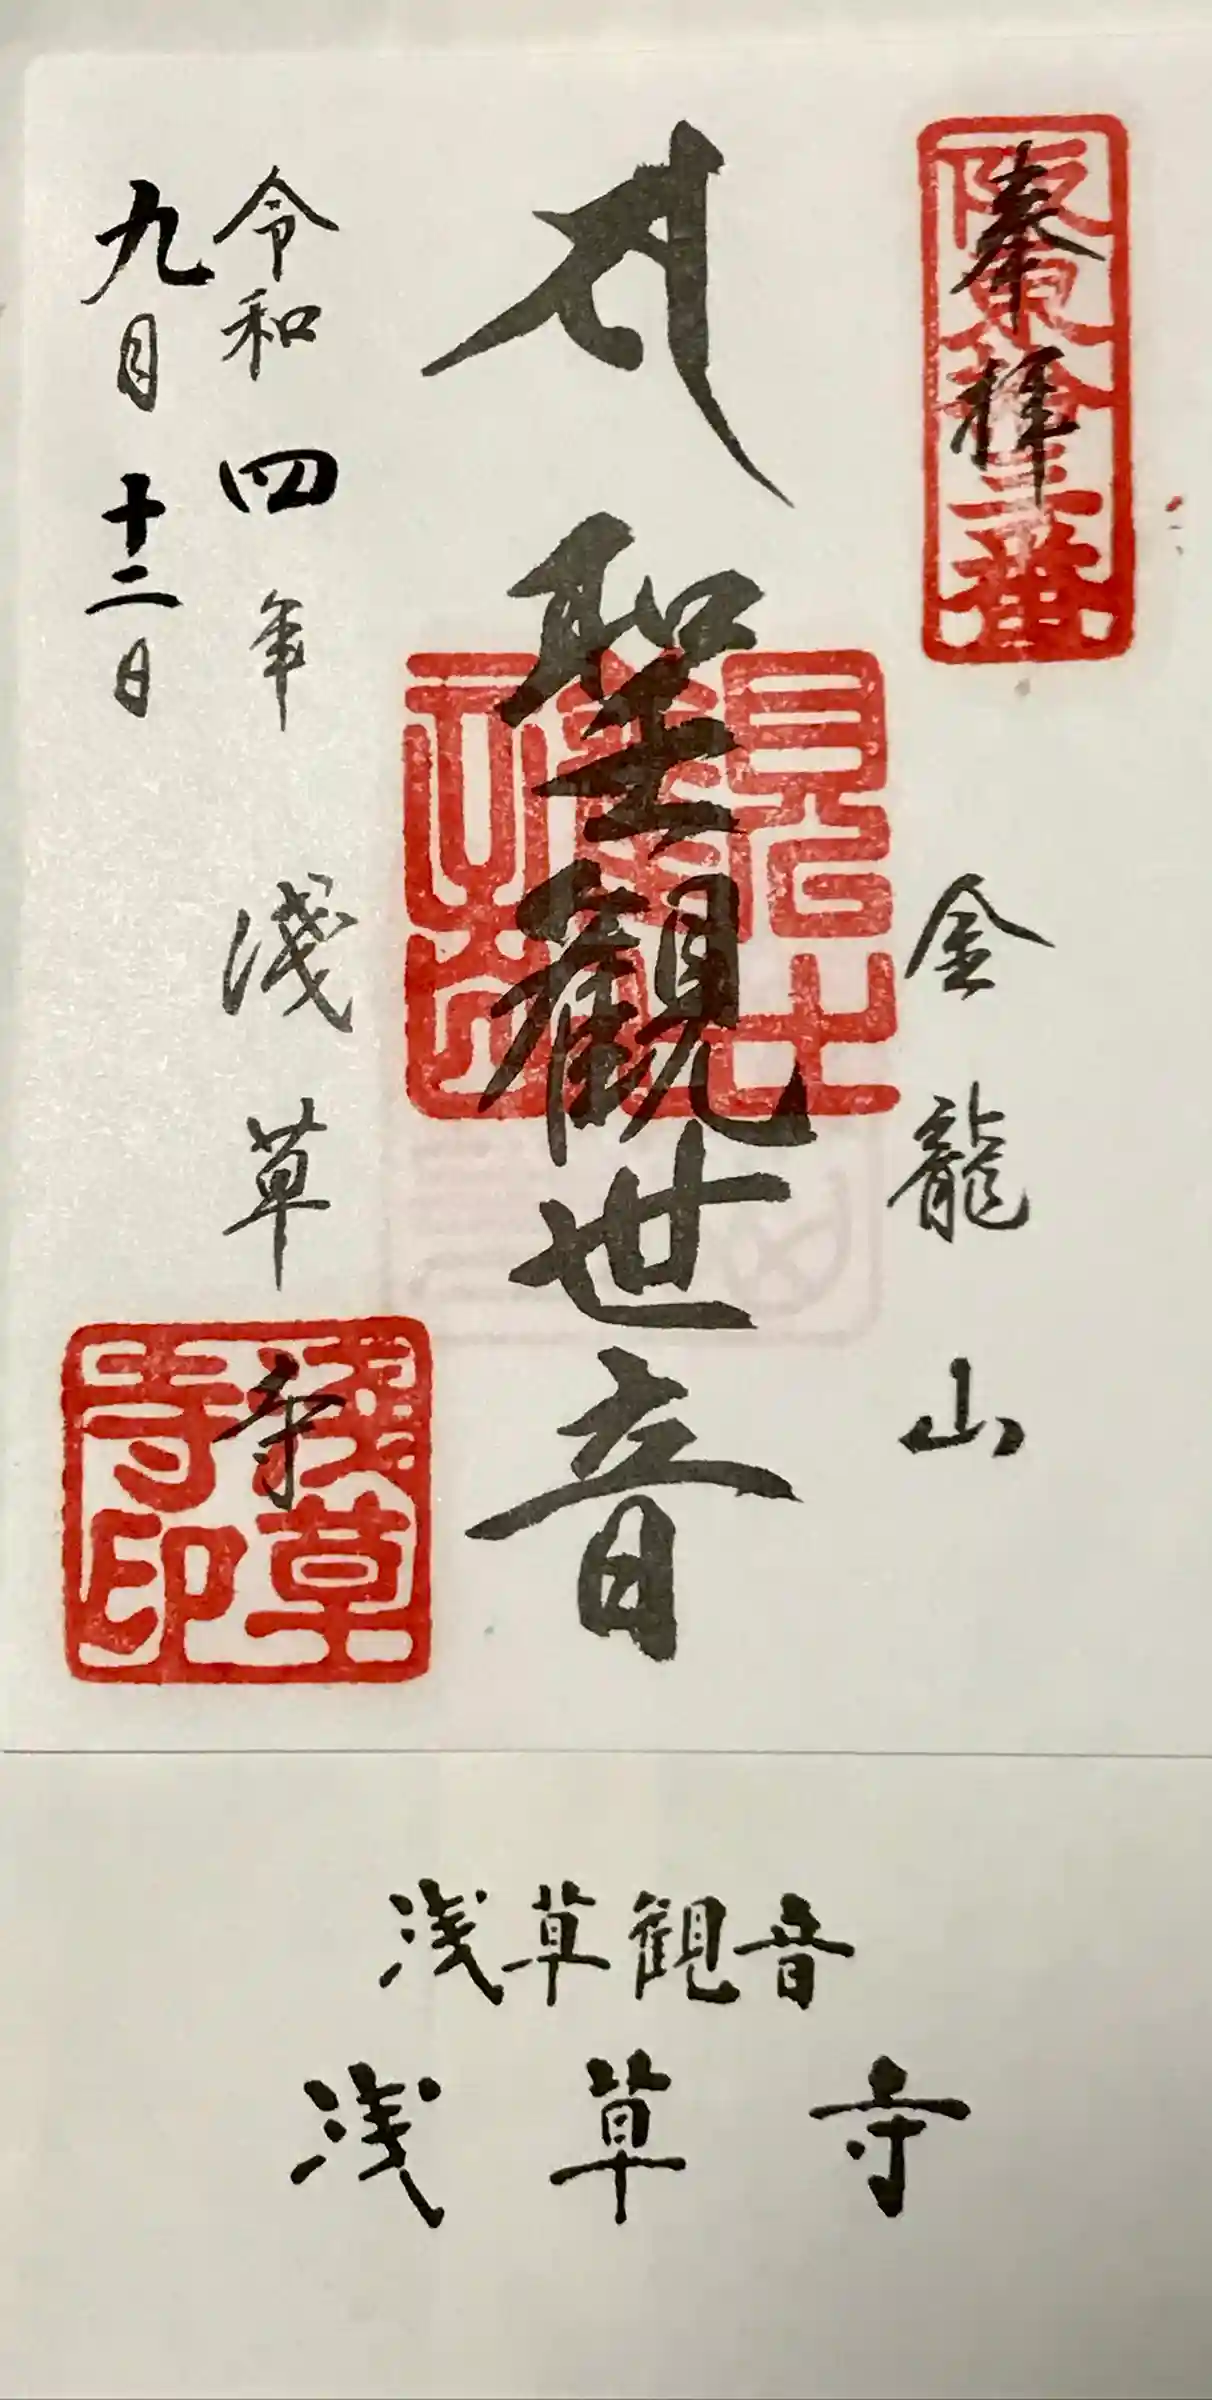 奉拝
坂東十三番
金龍山
聖観世音
令和四年
浅草寺
九月十二日
浅草寺印
浅草観音
浅草寺